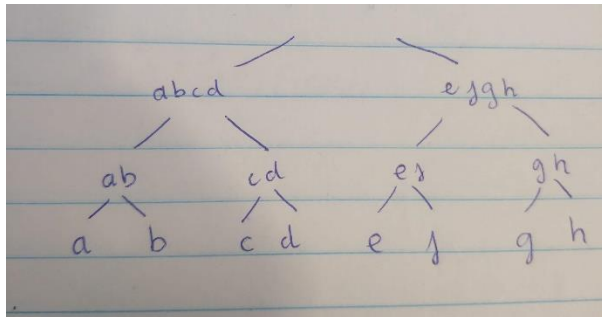 abcd efgh
ab cd ef gh
a b c d e f g h